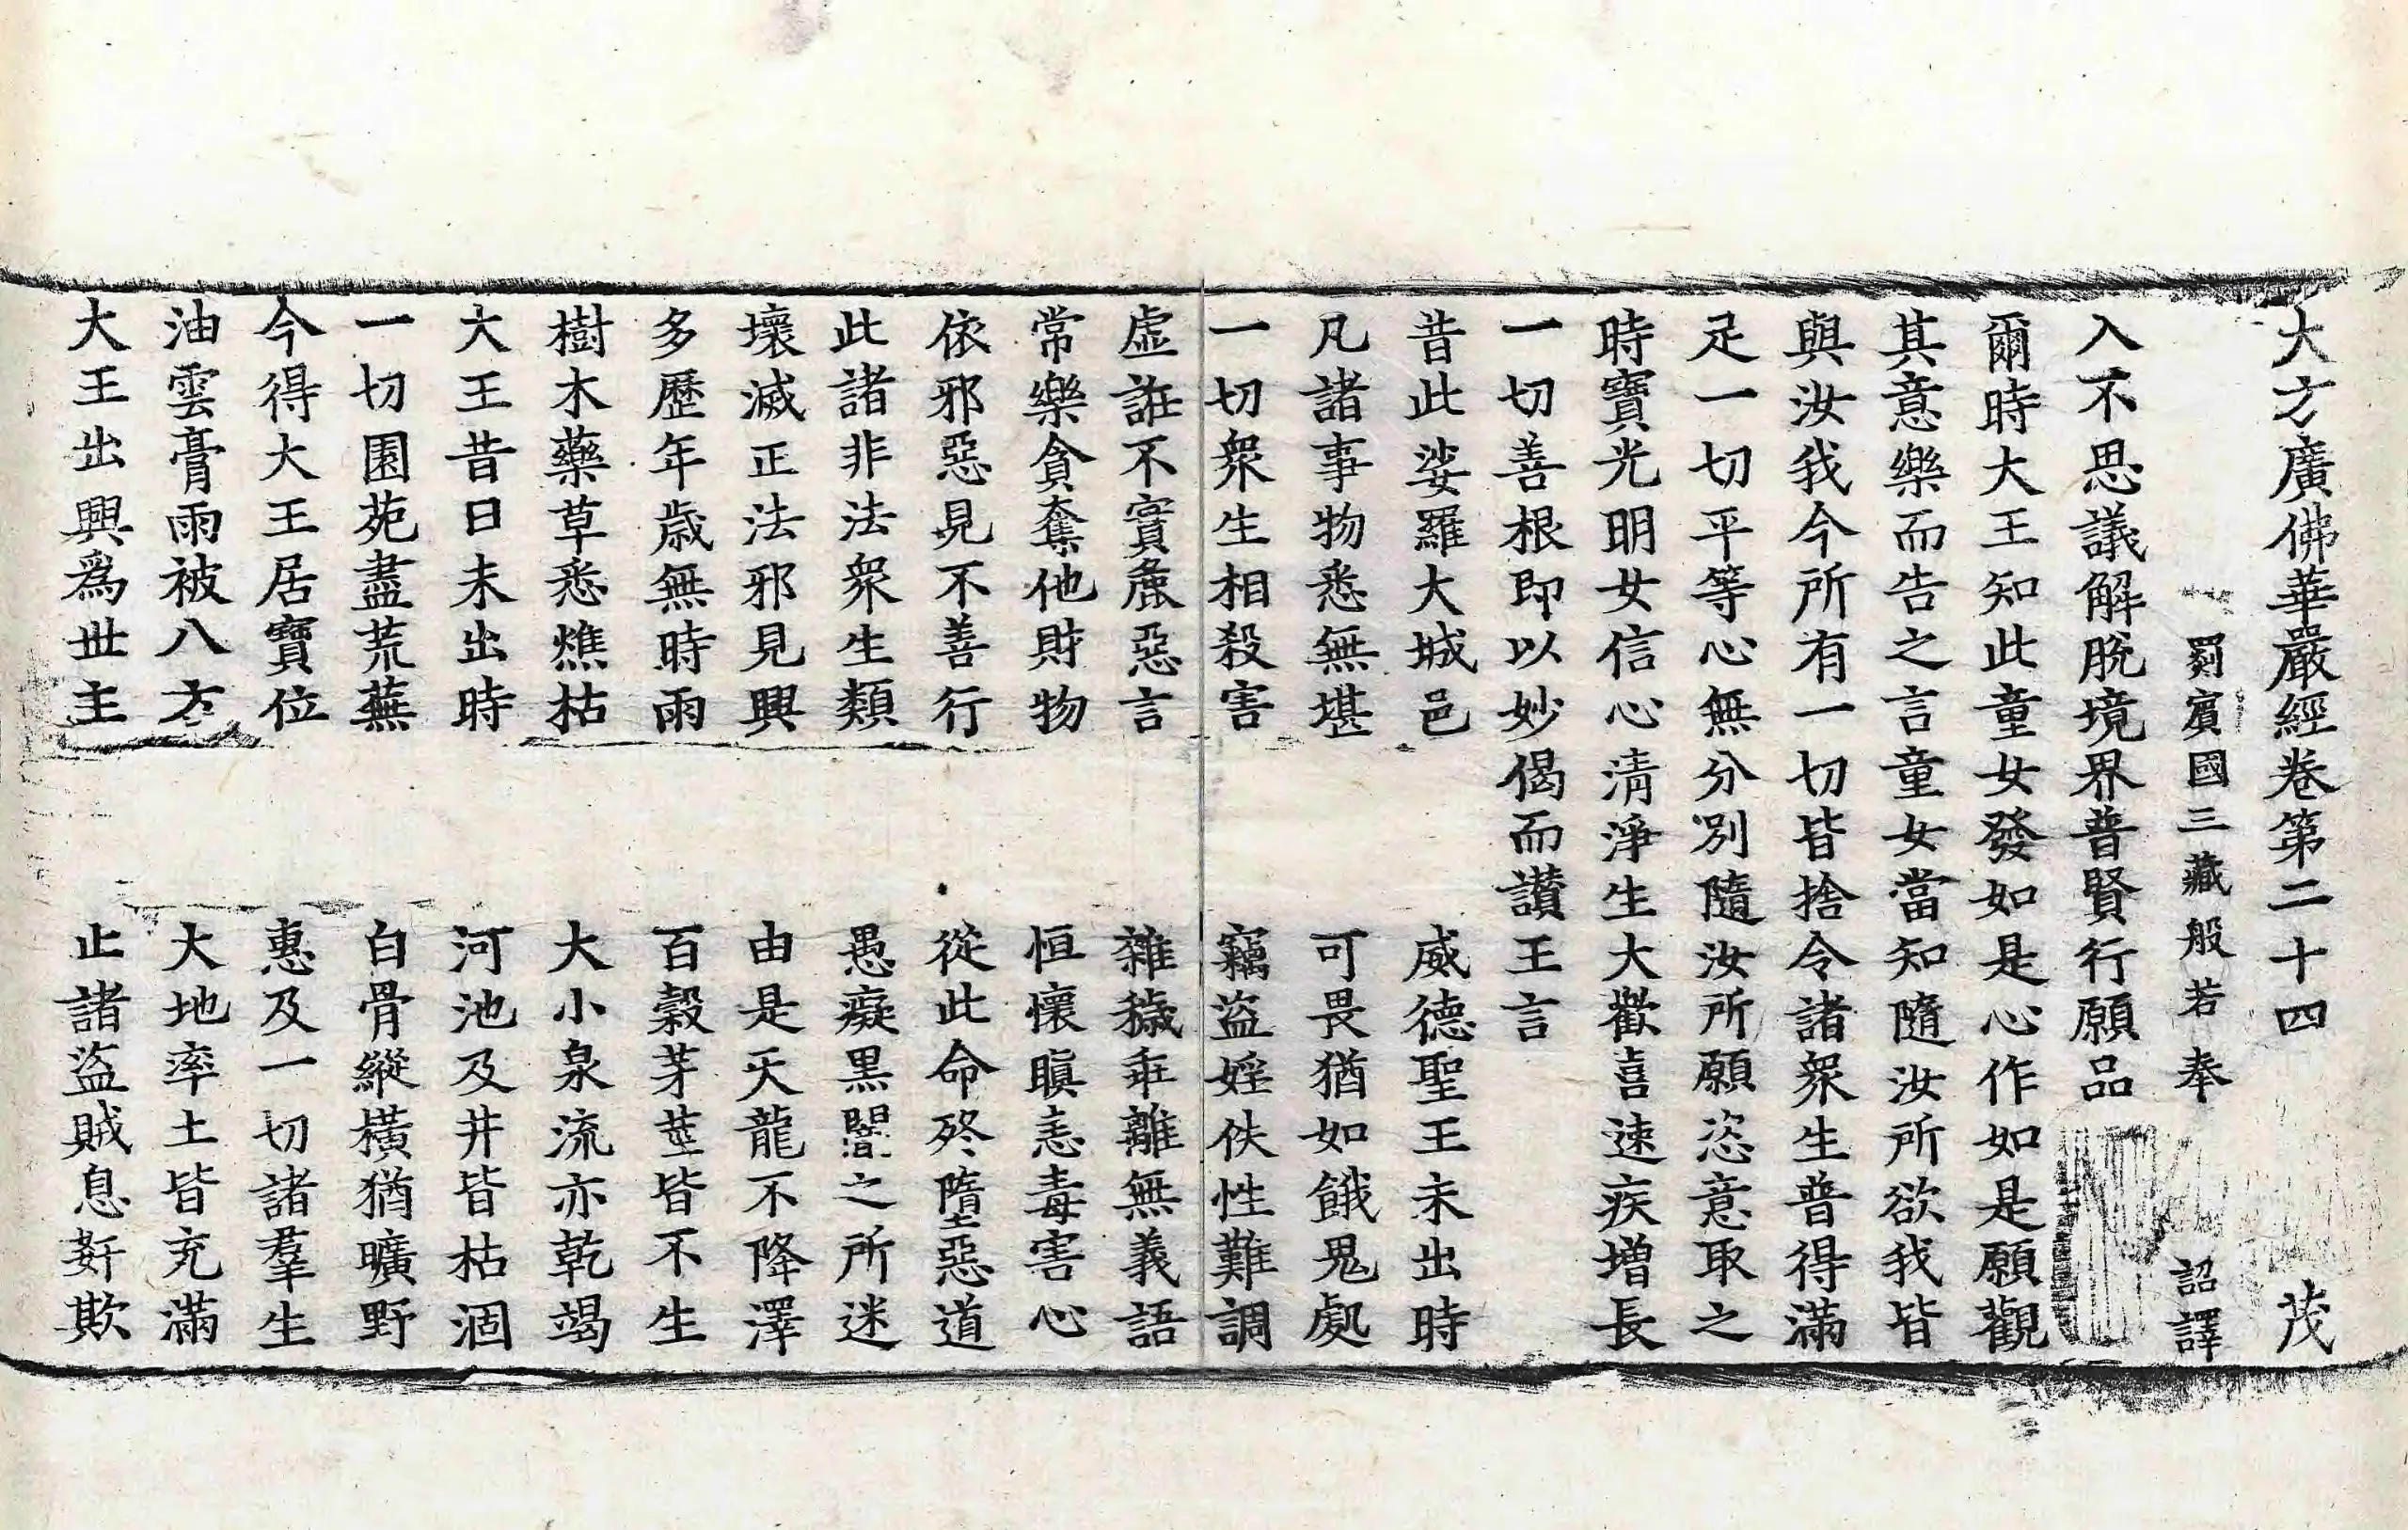 大方廣佛華嚴經卷第二十四 茂
罽賓國三藏般若奉 詔譯
入不思議解脫境界普賢行願品
爾時大王知此童女發如是心作如是願觀
其意樂而告之言童女當知隨汝所欲我皆
與汝我今所有一切皆捨令諸衆生普得滿
足一切平等心無分別隨汝所願恣意取之
時寶光明女信心清淨生大歡喜速疾增長
一切善根即以妙偈而讃王言
昔此娑羅大城邑 威德聖王未出時
凡諸事物悉無堪 可畏猶如餓鬼處
一切衆生相殺害 竊盜婬佚性難調
虛誑不實麁惡言 雜穢乖離無義語
常樂貪奪他財物 恒懷瞋恚毒害心
依邪惡見不善行 從此命終墮惡道
此諸非法衆生類 愚癡黑闇之所迷
壞滅正法邪見興 由是天龍不降澤
多歷年歲無時雨 百穀芽莖皆不生
樹木藥草悉燋枯 大小泉流亦乾竭
大王昔日未出時 河池及井皆枯涸
一切園苑盡荒蕪 白骨縱橫猶曠野
今得大王居寶位 惠及一切諸羣生
油雲膏雨被八方 大地率土皆充滿
大王出興爲世主 止諸盜賊息姧欺